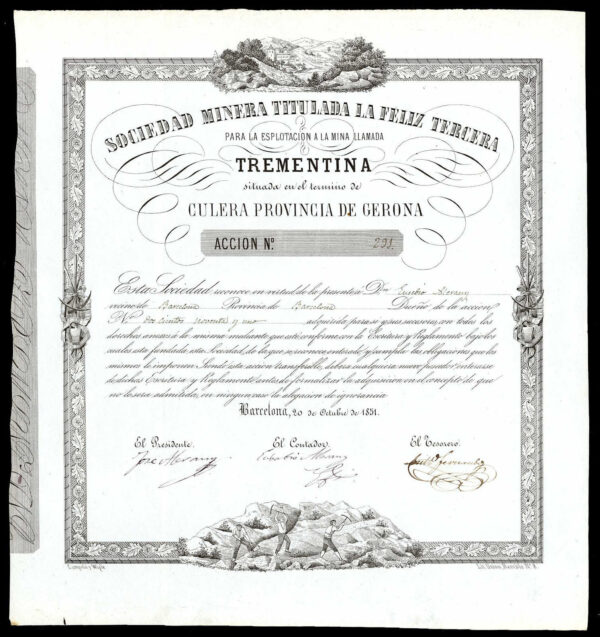 SOCIEDAD MINERA TITULADA LA FELIZ TERCERA
PARA LA ESPLOTACION A LA MINA LLAMADA
TREMENTINA
situada en el termino de
CULERA PROVINCIA DE GERONA
ACCION Nº. 291.
Esta Sociedad reconoce en virtud de la presente á Dn. Eusebio
vecino de Barcelona Provincia de Barcelona Dueño de la accion
Nº dos cientos noventa y uno adquirida para si y sus sucesores, con todos los
derechos anexos á la misma mediante que esté conforme con la Escritura y Reglamento bajo los
cuales esta fundada esta Sociedad, de la que se reconoce enterado y cumplir las obligaciones que los
mismos le imponen. Siendo esta accion transferible, deberá cualquiera nuevo poseedor enterarse
de dichas Escritura y Reglamento antes de formalizar la adquisicion en el concepto de que
no le será admitida en ningun caso la alegacion de ignorancia
Barcelona, 20 de Octubre de 1851.
El Presidente. El Contador. El Tesorero.
Jose